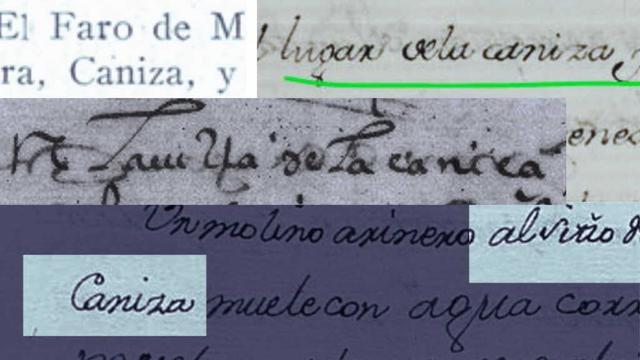 El Faro de M
ra, Caniza, y
lugar dela caniza y
enec
La uilla de la caniça
Un molino arinero al sitio d
Caniza muele con agua corr